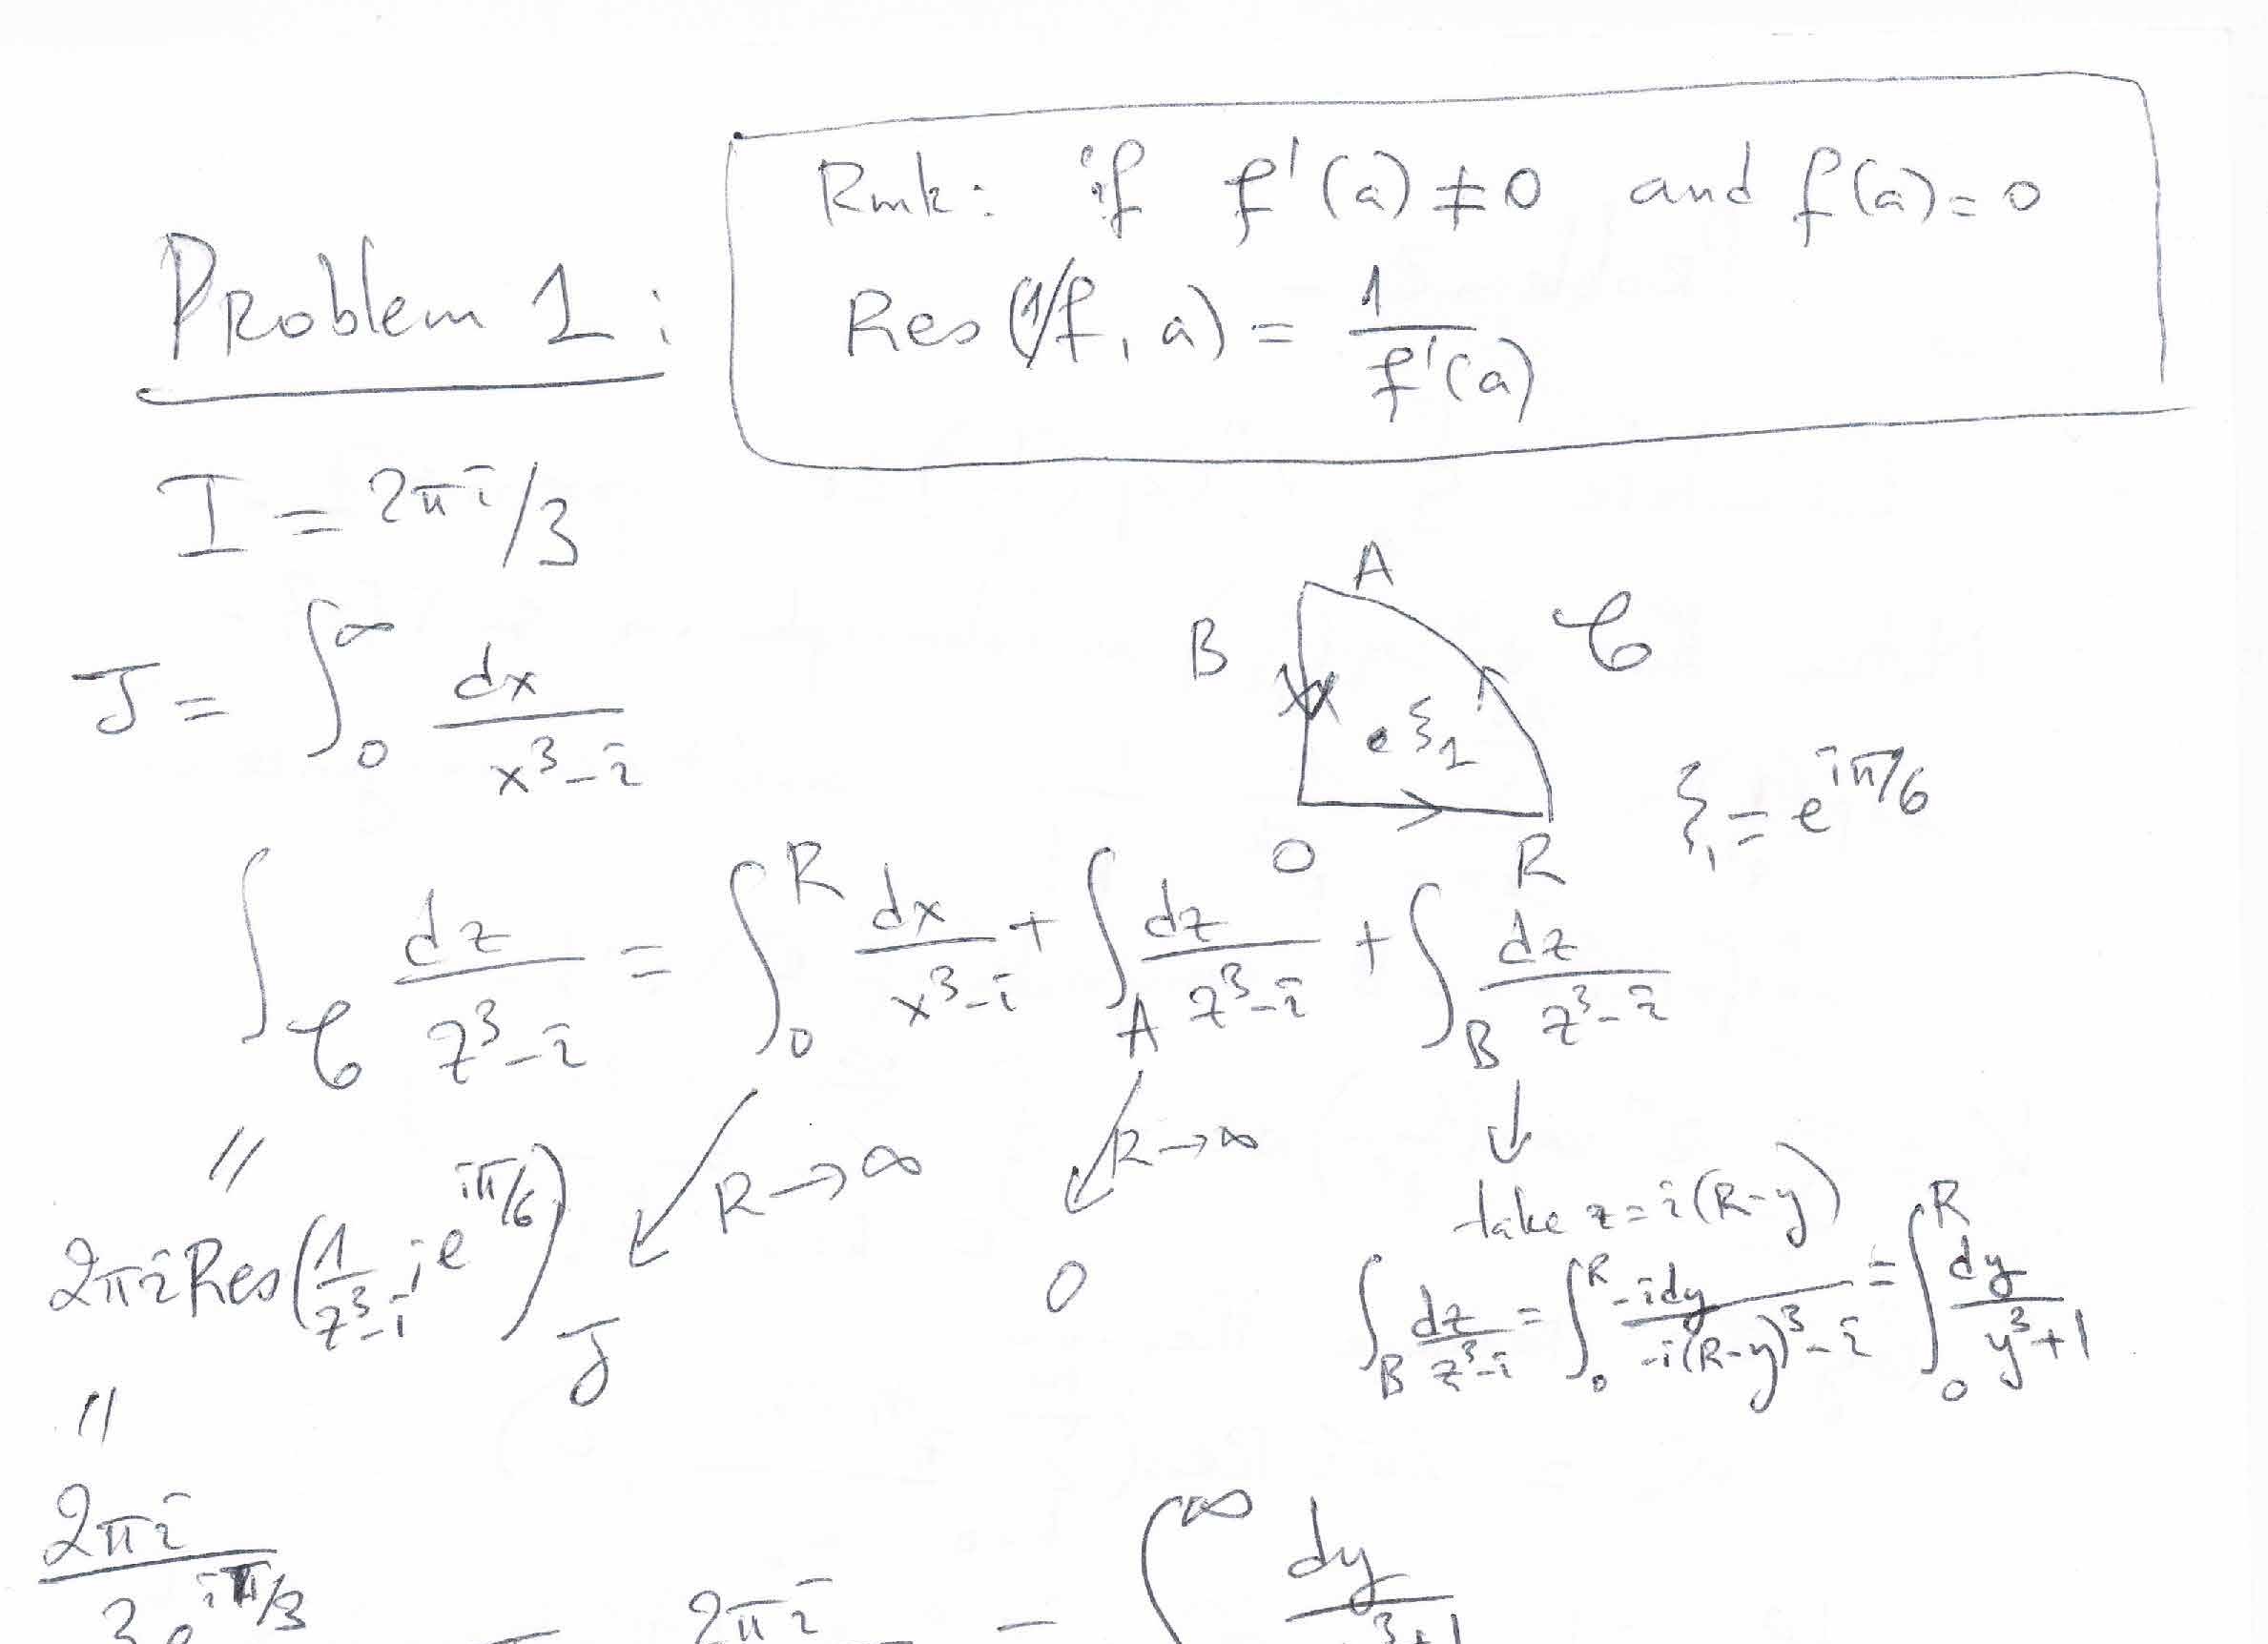 Rmk: if f'(a) ≠ 0 and f(a) = 0
Problem 1 :
Res(1/f, a) = 1/f'(a)
I = 2πi/3
J = ∫_0^∞ dx/(x³-i)
A
B
𝒞
ξ₁
ξ₁ = e^{iπ/6}
O R
∫_𝒞 dz/(z³-i) = ∫_0^R dx/(x³-i) + ∫_A dz/(z³-i) + ∫_B dz/(z³-i)
" R→∞ R→∞ ↓
take z = i(R-y)
2πi Res(1/(z³-i), e^{iπ/6}) J 0 ∫_B dz/(z³-i) = ∫_0^R -idy/(-i(R-y)³-i) = ∫_0^R dy/(y³+1)
"
2πi/(3e^{iπ/3})
2πi - ∫^∞ dy/(³+1)